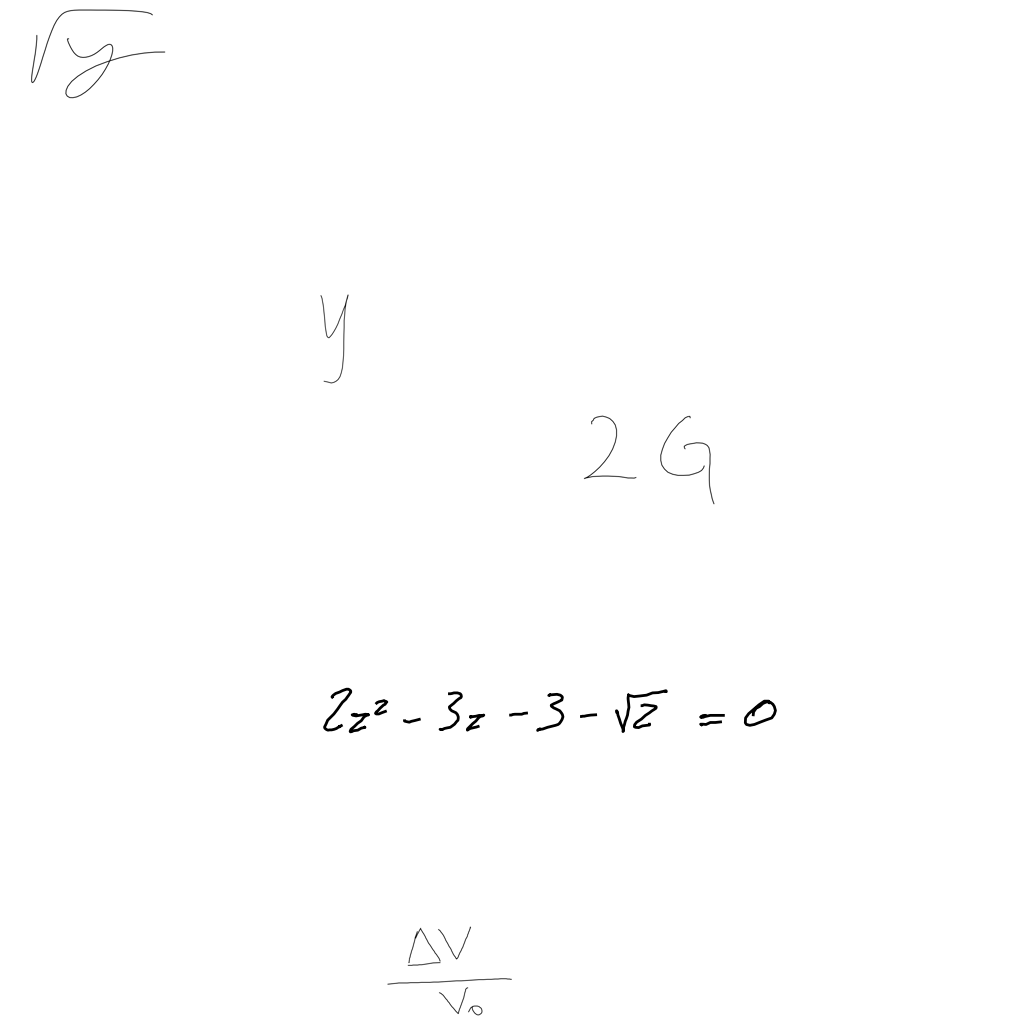 √y
y
2G
2z² - 3z - 3 - √z = 0
ΔV
V₀